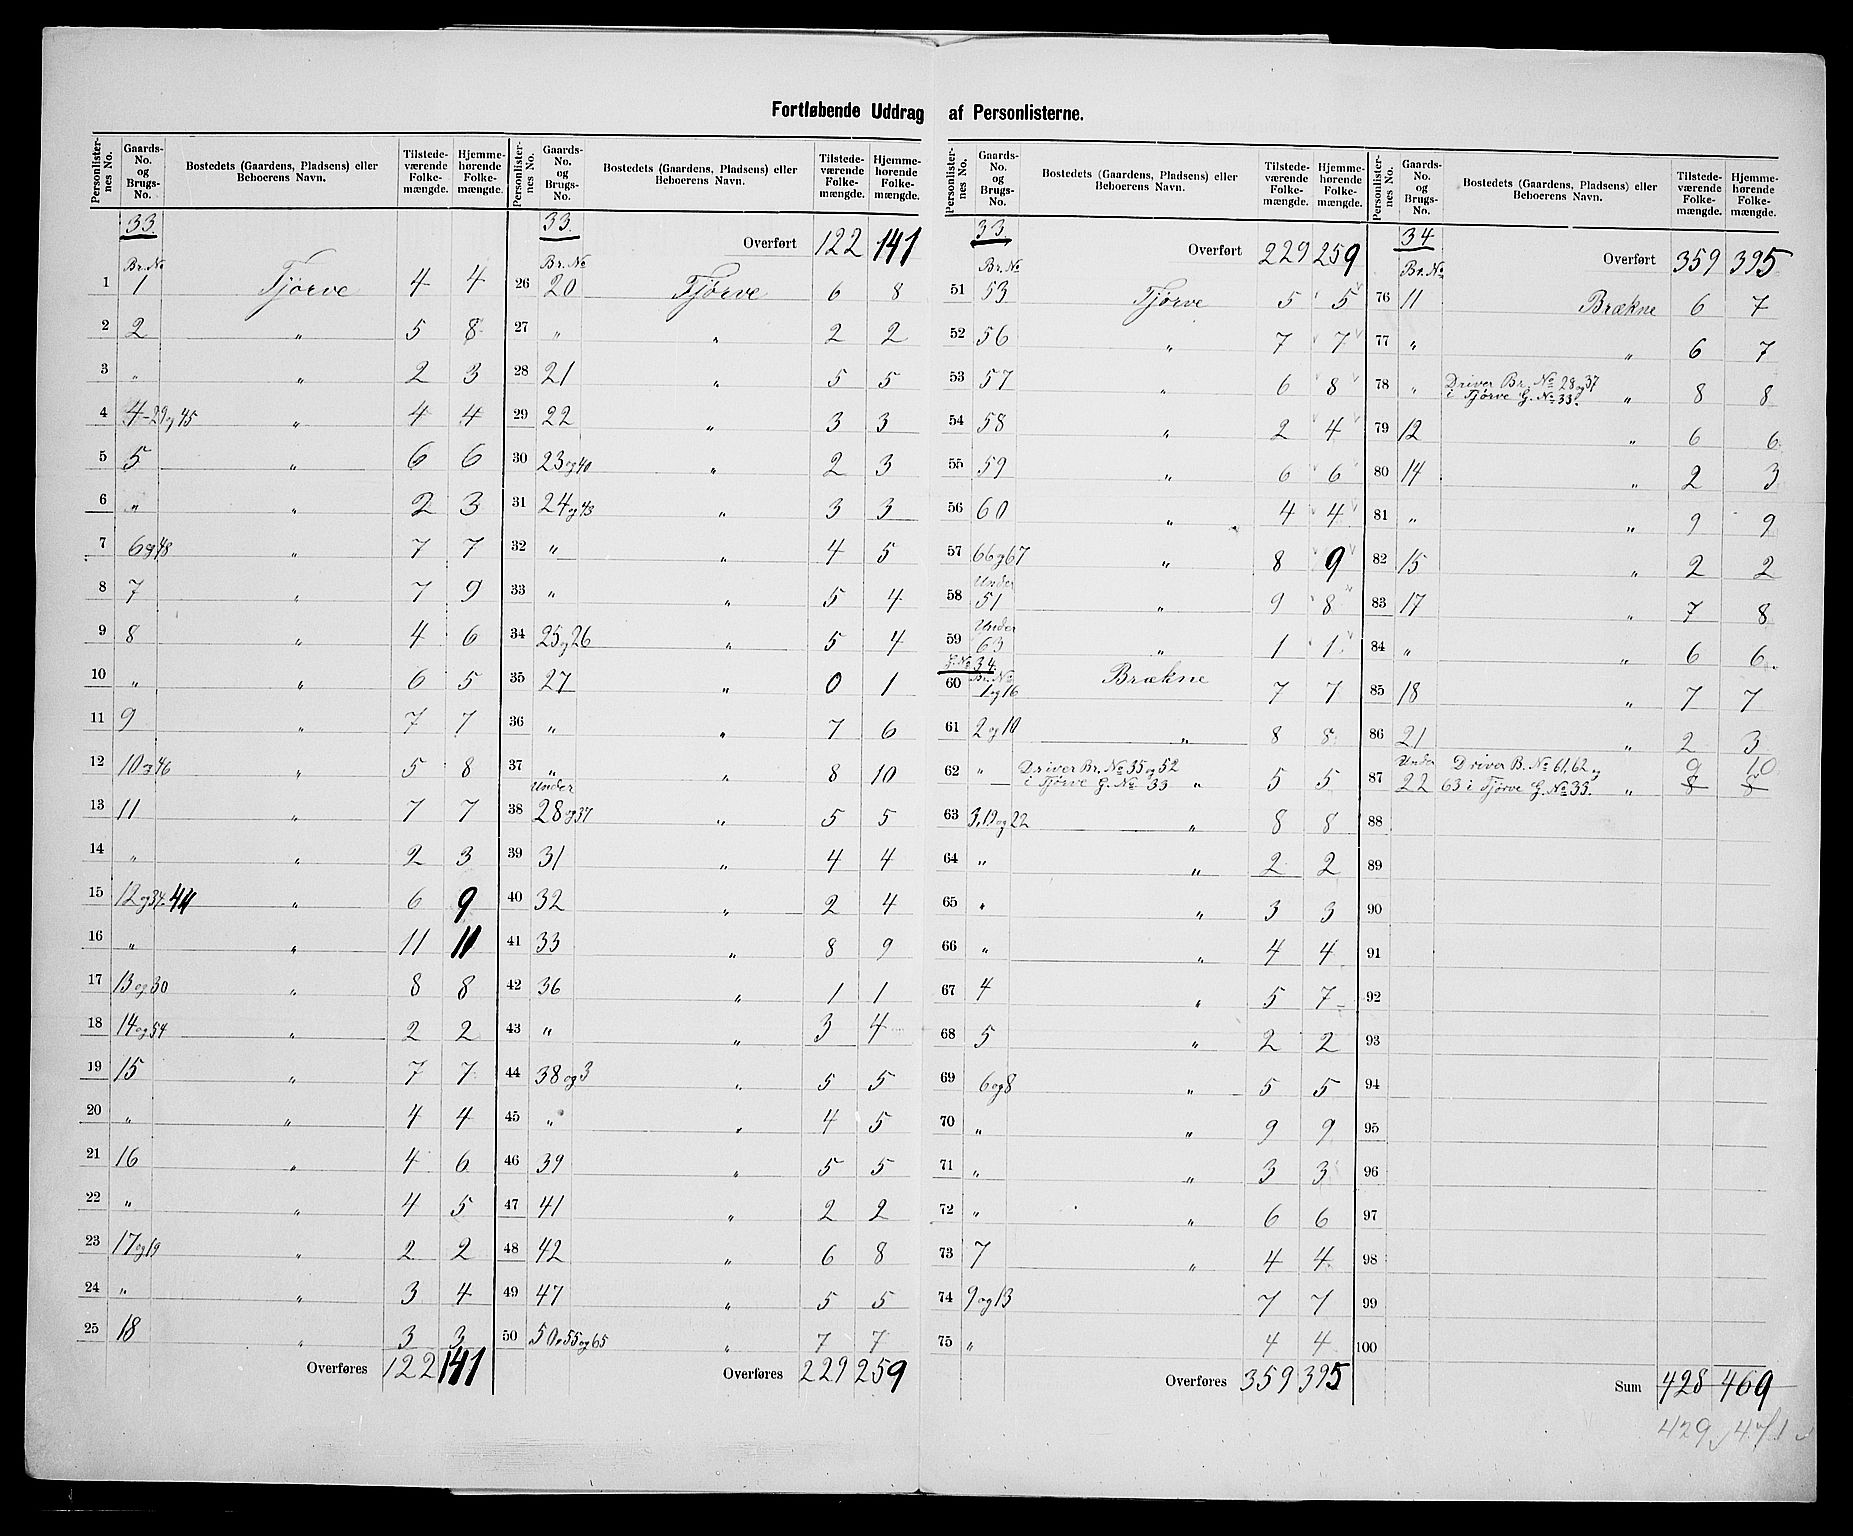 Fortløbende Uddrag af Personlisterne.
Personlister-nes No. | Gaards-No. og Brugs-No. | Bostedets (Gaardens, Pladsens) eller Beboerens Navn. | Tilstede-værende Folke-mængde. | Hjemme-hørende Folke-mængde.
33.
Br. No
1 1 Tjørve 4 4
2 2 " 5 8
3 " " 2 3
4 4-29 og 45 " 4 4
5 5 " 6 6
6 " " 2 3
7 6 og 48 " 7 7
8 7 " 7 9
9 8 " 4 6
10 " " 6 5
11 9 " 7 7
12 10 og 46 " 5 8
13 11 " 7 7
14 " " 2 3
15 12 og 34. 44 " 6 9
16 " " 11 11
17 13 og 30 " 8 8
18 14 og 54 " 2 2
19 15 " 7 7
20 " " 4 4
21 16 " 4 6
22 " " 4 5
23 17 og 19 " 2 2
24 " " 3 4
25 18 " 3 3
Overføres 122 141
Personlister-nes No. | Gaards-No. og Brugs-No. | Bostedets (Gaardens, Pladsens) eller Beboerens Navn. | Tilstede-værende Folke-mængde. | Hjemme-hørende Folke-mængde.
33.
Overført 122 141
Br. No
26 20 Tjørve 6 8
27 " " 2 2
28 21 " 5 5
29 22 " 3 3
30 23 og 40 " 2 3
31 24 og 43 " 3 3
32 " " 4 5
33 " " 5 4
34 25 og 26 " 5 4
35 27 " 0 1
36 " " 7 6
37 " " 8 10
Under
38 28 og 37 " 5 5
39 31 " 4 4
40 32 " 2 4
41 33 " 8 9
42 36 " 1 1
43 " " 3 4
44 38 og 3 " 5 5
45 " " 4 5
46 39 " 5 5
47 41 " 2 2
48 42 " 6 8
49 47 " 5 5
50 50, 55 og 65 " 7 7
Overføres 229 259
Personlister-nes No. | Gaards-No. og Brugs-No. | Bostedets (Gaardens, Pladsens) eller Beboerens Navn. | Tilstede-værende Folke-mængde. | Hjemme-hørende Folke-mængde.
33.
Overført 229 259
Br. No
51 53 Tjørve 5 5
52 56 " 7 7
53 57 " 6 8
54 58 " 2 4
55 59 " 6 6
56 60 " 4 4
57 66 og 67 " 8 9
Under
58 51 " 9 8
Under
59 63 " 1 1
G. No 34.
Br. No
60 1 og 16 Brækne 7 7
61 2 og 10 " 8 8
62 " Driver Br. No 35 og 52
i Tjørve G. No 33 " 5 5
63 3, 19 og 22 " 8 8
64 " " 2 2
65 " " 3 3
66 " " 4 4
67 4 " 5 7
68 5 " 2 2
69 6 og 8 " 5 5
70 " " 9 9
71 " " 3 3
72 " " 6 6
73 7 " 4 4
74 9 og 13 7 7
75 " 4 4
Overføres 359 395
Personlister-nes No. | Gaards-No. og Brugs-No. | Bostedets (Gaardens, Pladsens) eller Beboerens Navn. | Tilstede-værende Folke-mængde. | Hjemme-hørende Folke-mængde.
34
Overført 359 395
Br. No
76 11 Brækne 6 7
77 " " 6 7
78 " Driver Br. No 28 og 37
i Tjørve G. No 33. " 8 8
79 12 " 6 6
80 14 " 2 3
81 " " 9 9
82 15 " 2 2
83 17 " 7 8
84 " " 6 6
85 18 " 7 7
86 21 " 2 3
Under Driver B. No 61, 62 og 9 10
87 22 63 i Tjørve G. No 33. " 8 8
88
89
90
91
92
93
94
95
96
97
98
99
100
Sum 428 469
429 471